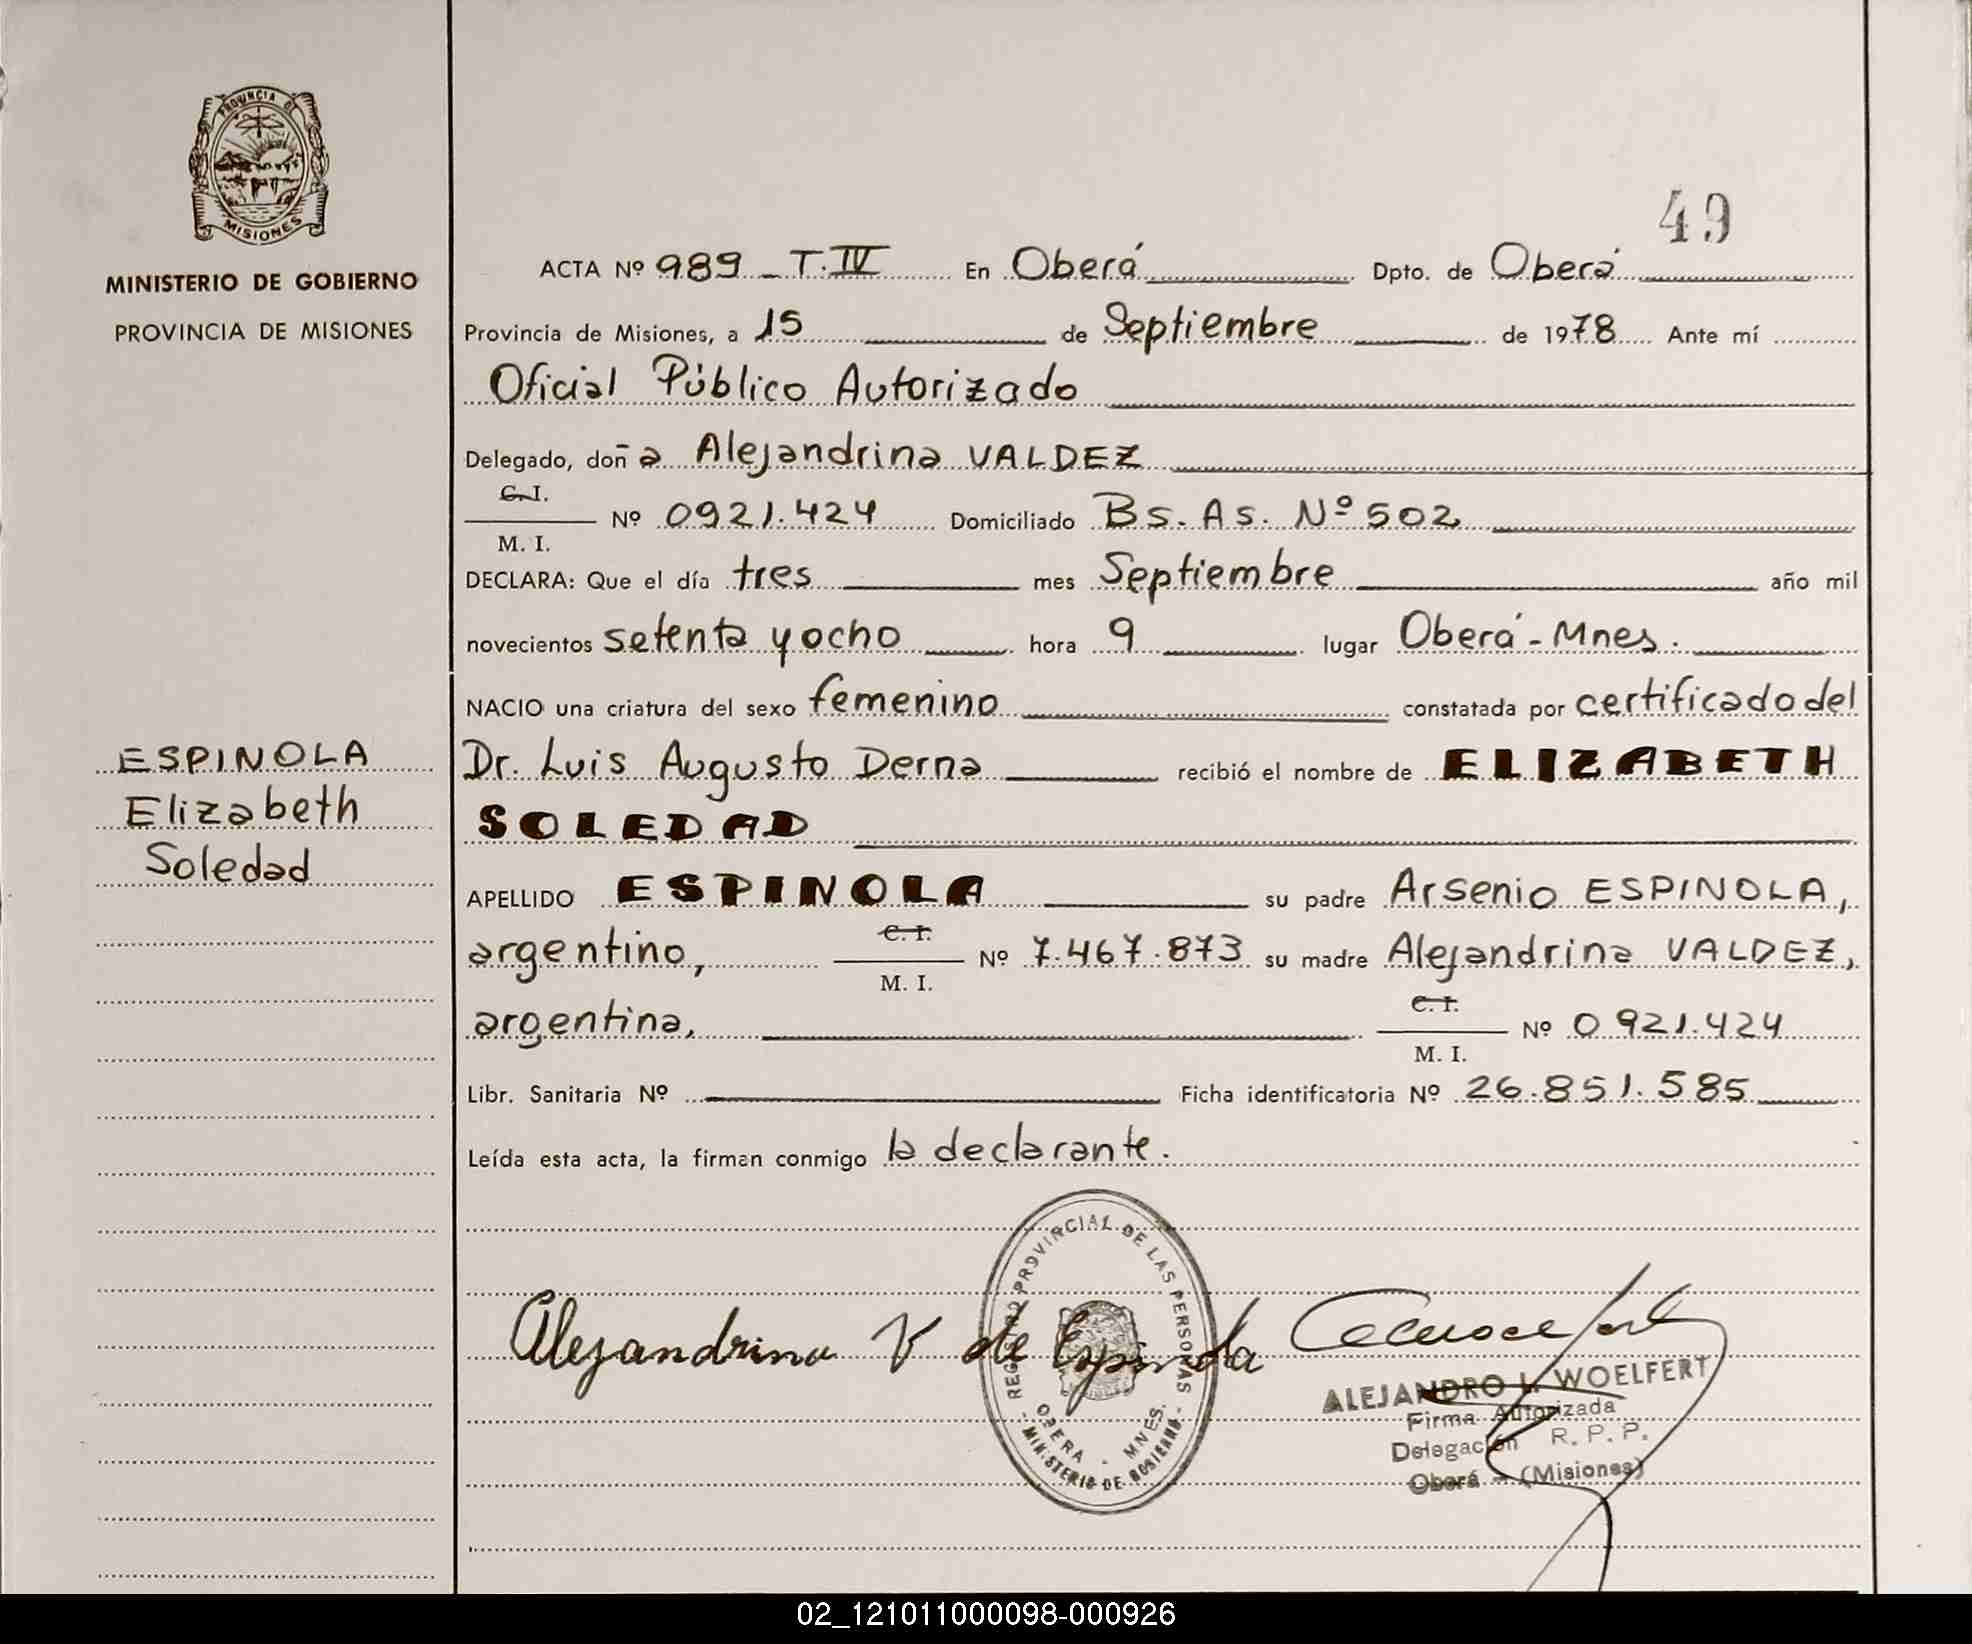 PROVINCIA DE
MISIONES
MINISTERIO DE GOBIERNO
PROVINCIA DE MISIONES
49
ACTA Nº 989 - T. IV En Oberá Dpto. de Oberá
Provincia de Misiones, a 15 de Septiembre de 1978 Ante mí
Oficial Público Autorizado
Delegado, doña Alejandrina VALDEZ
C. I.
Nº 0921.424 Domiciliado Bs. As. Nº 502
M. I.
DECLARA: Que el día tres mes Septiembre año mil
novecientos setenta y ocho hora 9 lugar Oberá - Mnes.
NACIO una criatura del sexo femenino constatada por certificado del
ESPINOLA
Elizabeth
Soledad
Dr. Luis Augusto Derna recibió el nombre de ELIZABETH
SOLEDAD
APELLIDO ESPINOLA su padre Arsenio ESPINOLA,
C. I.
argentino, Nº 7.467.873 su madre Alejandrina VALDEZ,
M. I.
C. I.
argentina, Nº 0921.424
M. I.
Libr. Sanitaria Nº Ficha identificatoria Nº 26.851.585
Leída esta acta, la firman conmigo la declarante.
REGISTRO PROVINCIAL DE LAS PERSONAS
OBERA - MNES.
- MINISTERIO DE GOBIERNO -
Alejandrina V de Espinola
ALEJANDRO L. WOELFERT
Firma Autorizada
Delegación R. P. P.
Oberá - (Misiones)
02_121011000098-000926